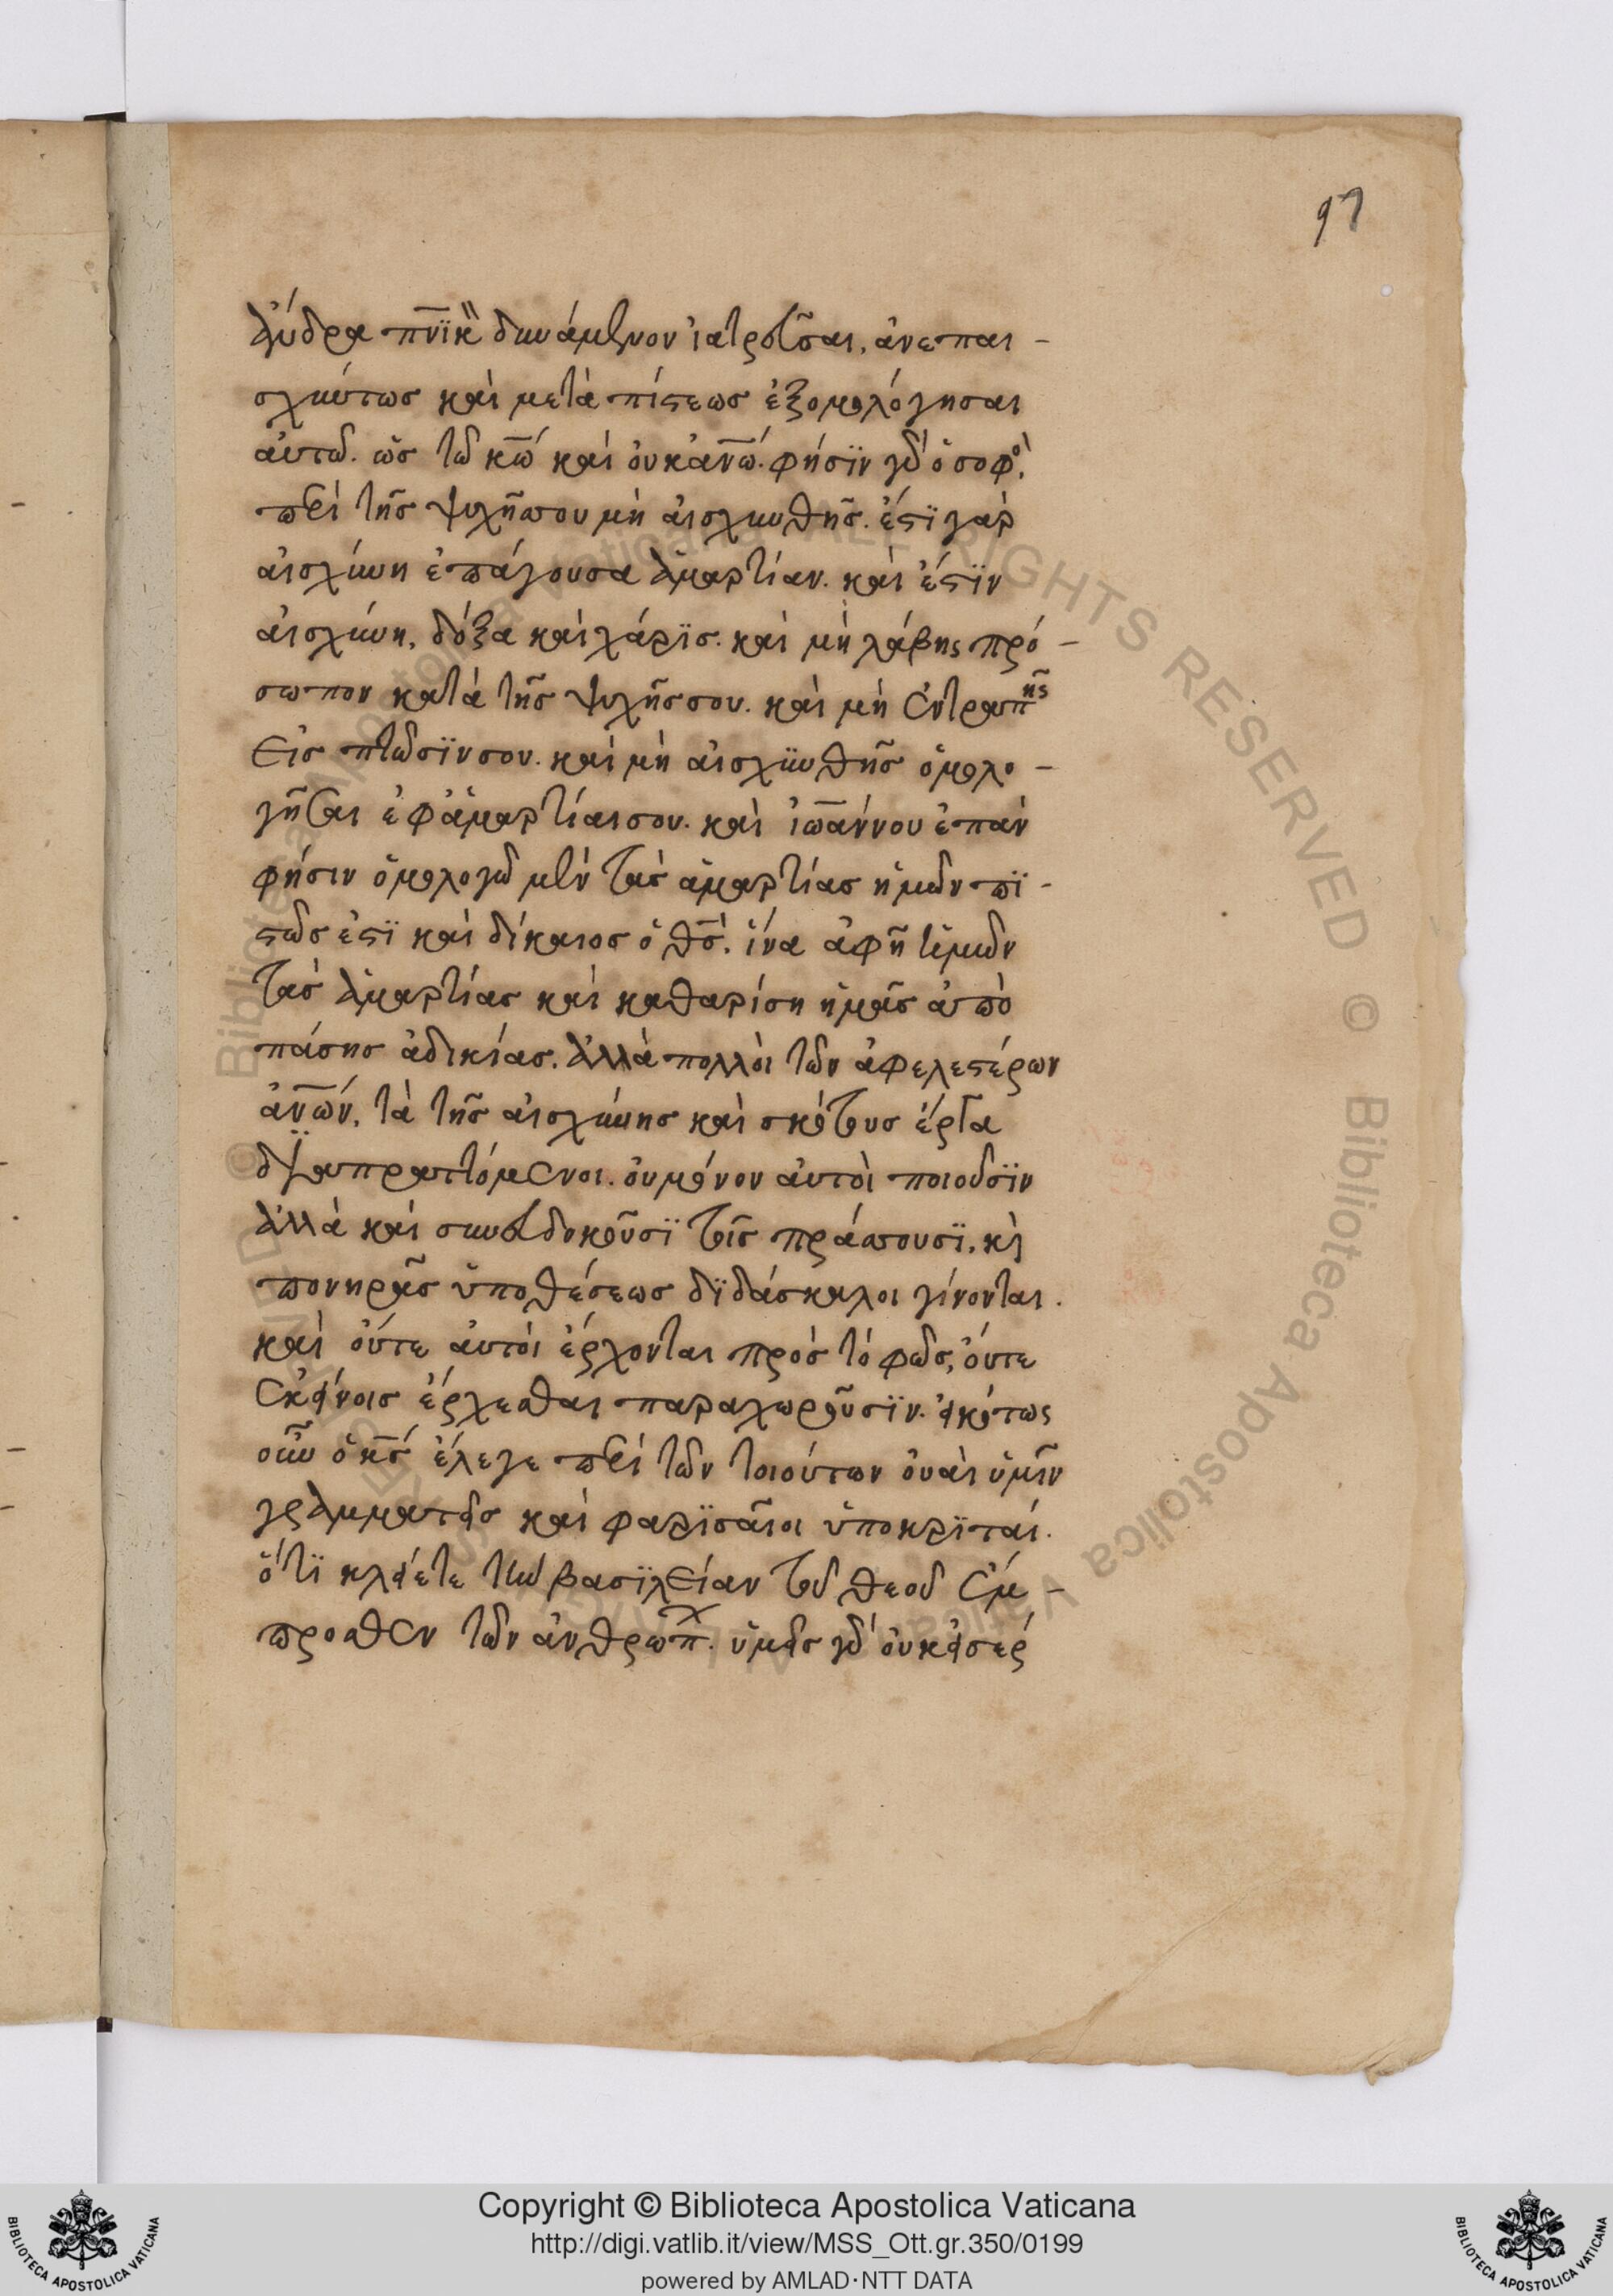 97
ἄνδρα πν̅ϊκὸν δυνάμενον ἰατρεῦσαι, ἀνεπαι-
σχύντως καὶ μετὰ πίστεως ἐξομολόγησαι
αὐτῶ. ὡς τῶ κ̅ω καὶ οὐκ ἀν̅ω. φήσϊν γὰρ ὁ σοφὸς,
περὶ τῆς ψυχῆς σου μὴ αἰσχυνθῆς. ἔστϊ γὰρ
αἰσχύνη ἐπάγουσα ἁμαρτίαν. καὶ ἔστϊν
αἰσχύνη, δόξα καὶ χάρϊς. καὶ μὴ λάβης πρό-
σωπον κατὰ τῆς ψυχῆς σου. καὶ μὴ ἐντραπῆς
εἰς πτῶσϊν σου. καὶ μὴ αἰσχϋνθῆς ὁμολο-
γῆσαι ἐφ ἁμαρτίαι σου. καὶ ἰω̅άννου ἐπὰν
φήσιν ὁμολογῶμεν τὰς ἁμαρτίας ἡμῶν πϊ-
στῶς ἐστϊ καὶ δίκαιος ὁ θ̅ς. ἵνα ἀφῆ ἡμῶν
τὰς ἁμαρτίας καὶ καθαρίση ἡμᾶς ἀπὸ
πάσης ἀδικίας. ἀλλὰ πολλοὶ τῶν ἀφελεστέρων
ἀν̅ων, τὰ τῆς αἰσχύνης καὶ σκότους ἔργα
διαπραττόμενοι. οὐ μόνον αὐτοὶ ποιοῦσϊν
ἀλλὰ καὶ συνευδοκοῦσϊ τοῖς πράσσουσϊ, κὶ
πονηρᾶς ὑποθέσεως δϊδάσκαλοι γίνονται.
καὶ οὔτε αὐτοὶ ἔρχονται πρὸς τὸ φῶς, οὔτε
ἐκείνοις ἔρχεσθαι παραχωροῦσϊν. εἰκότως
οὖν ὁ κ̅ς ἔλεγε περὶ τῶν τοιούτων οὐαὶ ὑμῖν
γραμματεῖς καὶ φαρϊσαῖοι ὑποκρϊταί.
ὅτϊ κλείετε τὴν βασϊλείαν τοῦ θεοῦ ἔμ-
προσθεν τῶν ἀνθρώπων. ὑμεῖς γὰρ οὐκ εἰσέρ
Copyright © Biblioteca Apostolica Vaticana
http://digi.vatlib.it/view/MSS_Ott.gr.350/0199
powered by AMLAD·NTT DATA